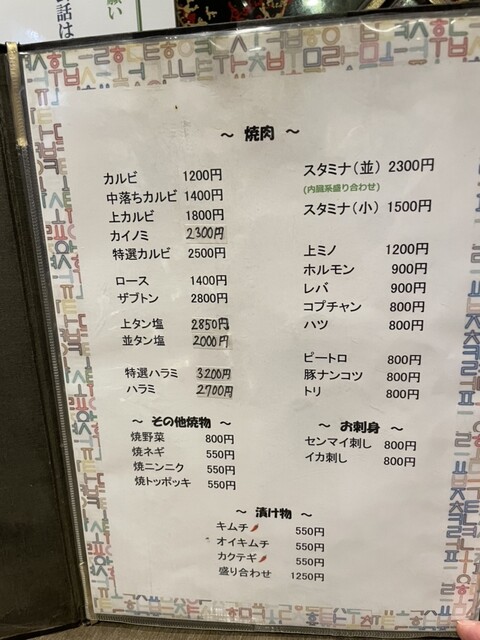 願い
話は
～ 焼肉 ～
カルビ 1200円
中落ちカルビ 1400円
上カルビ 1800円
カイノミ 2300円
特選カルビ 2500円
ロース 1400円
ザブトン 2800円
上タン塩 2850円
並タン塩 2000円
特選ハラミ 3200円
ハラミ 2700円
スタミナ（並） 2300円
(内臓系盛り合わせ)
スタミナ（小） 1500円
上ミノ 1200円
ホルモン 900円
レバ 900円
コプチャン 800円
ハツ 800円
ピートロ 800円
豚ナンコツ 800円
トリ 800円
～ その他焼物 ～
焼野菜 800円
焼ネギ 550円
焼ニンニク 550円
焼トッポッキ 550円
～ お刺身 ～
センマイ刺し 800円
イカ刺し 800円
～ 漬け物 ～
キムチ 550円
オイキムチ 550円
カクテギ 550円
盛り合わせ 1250円